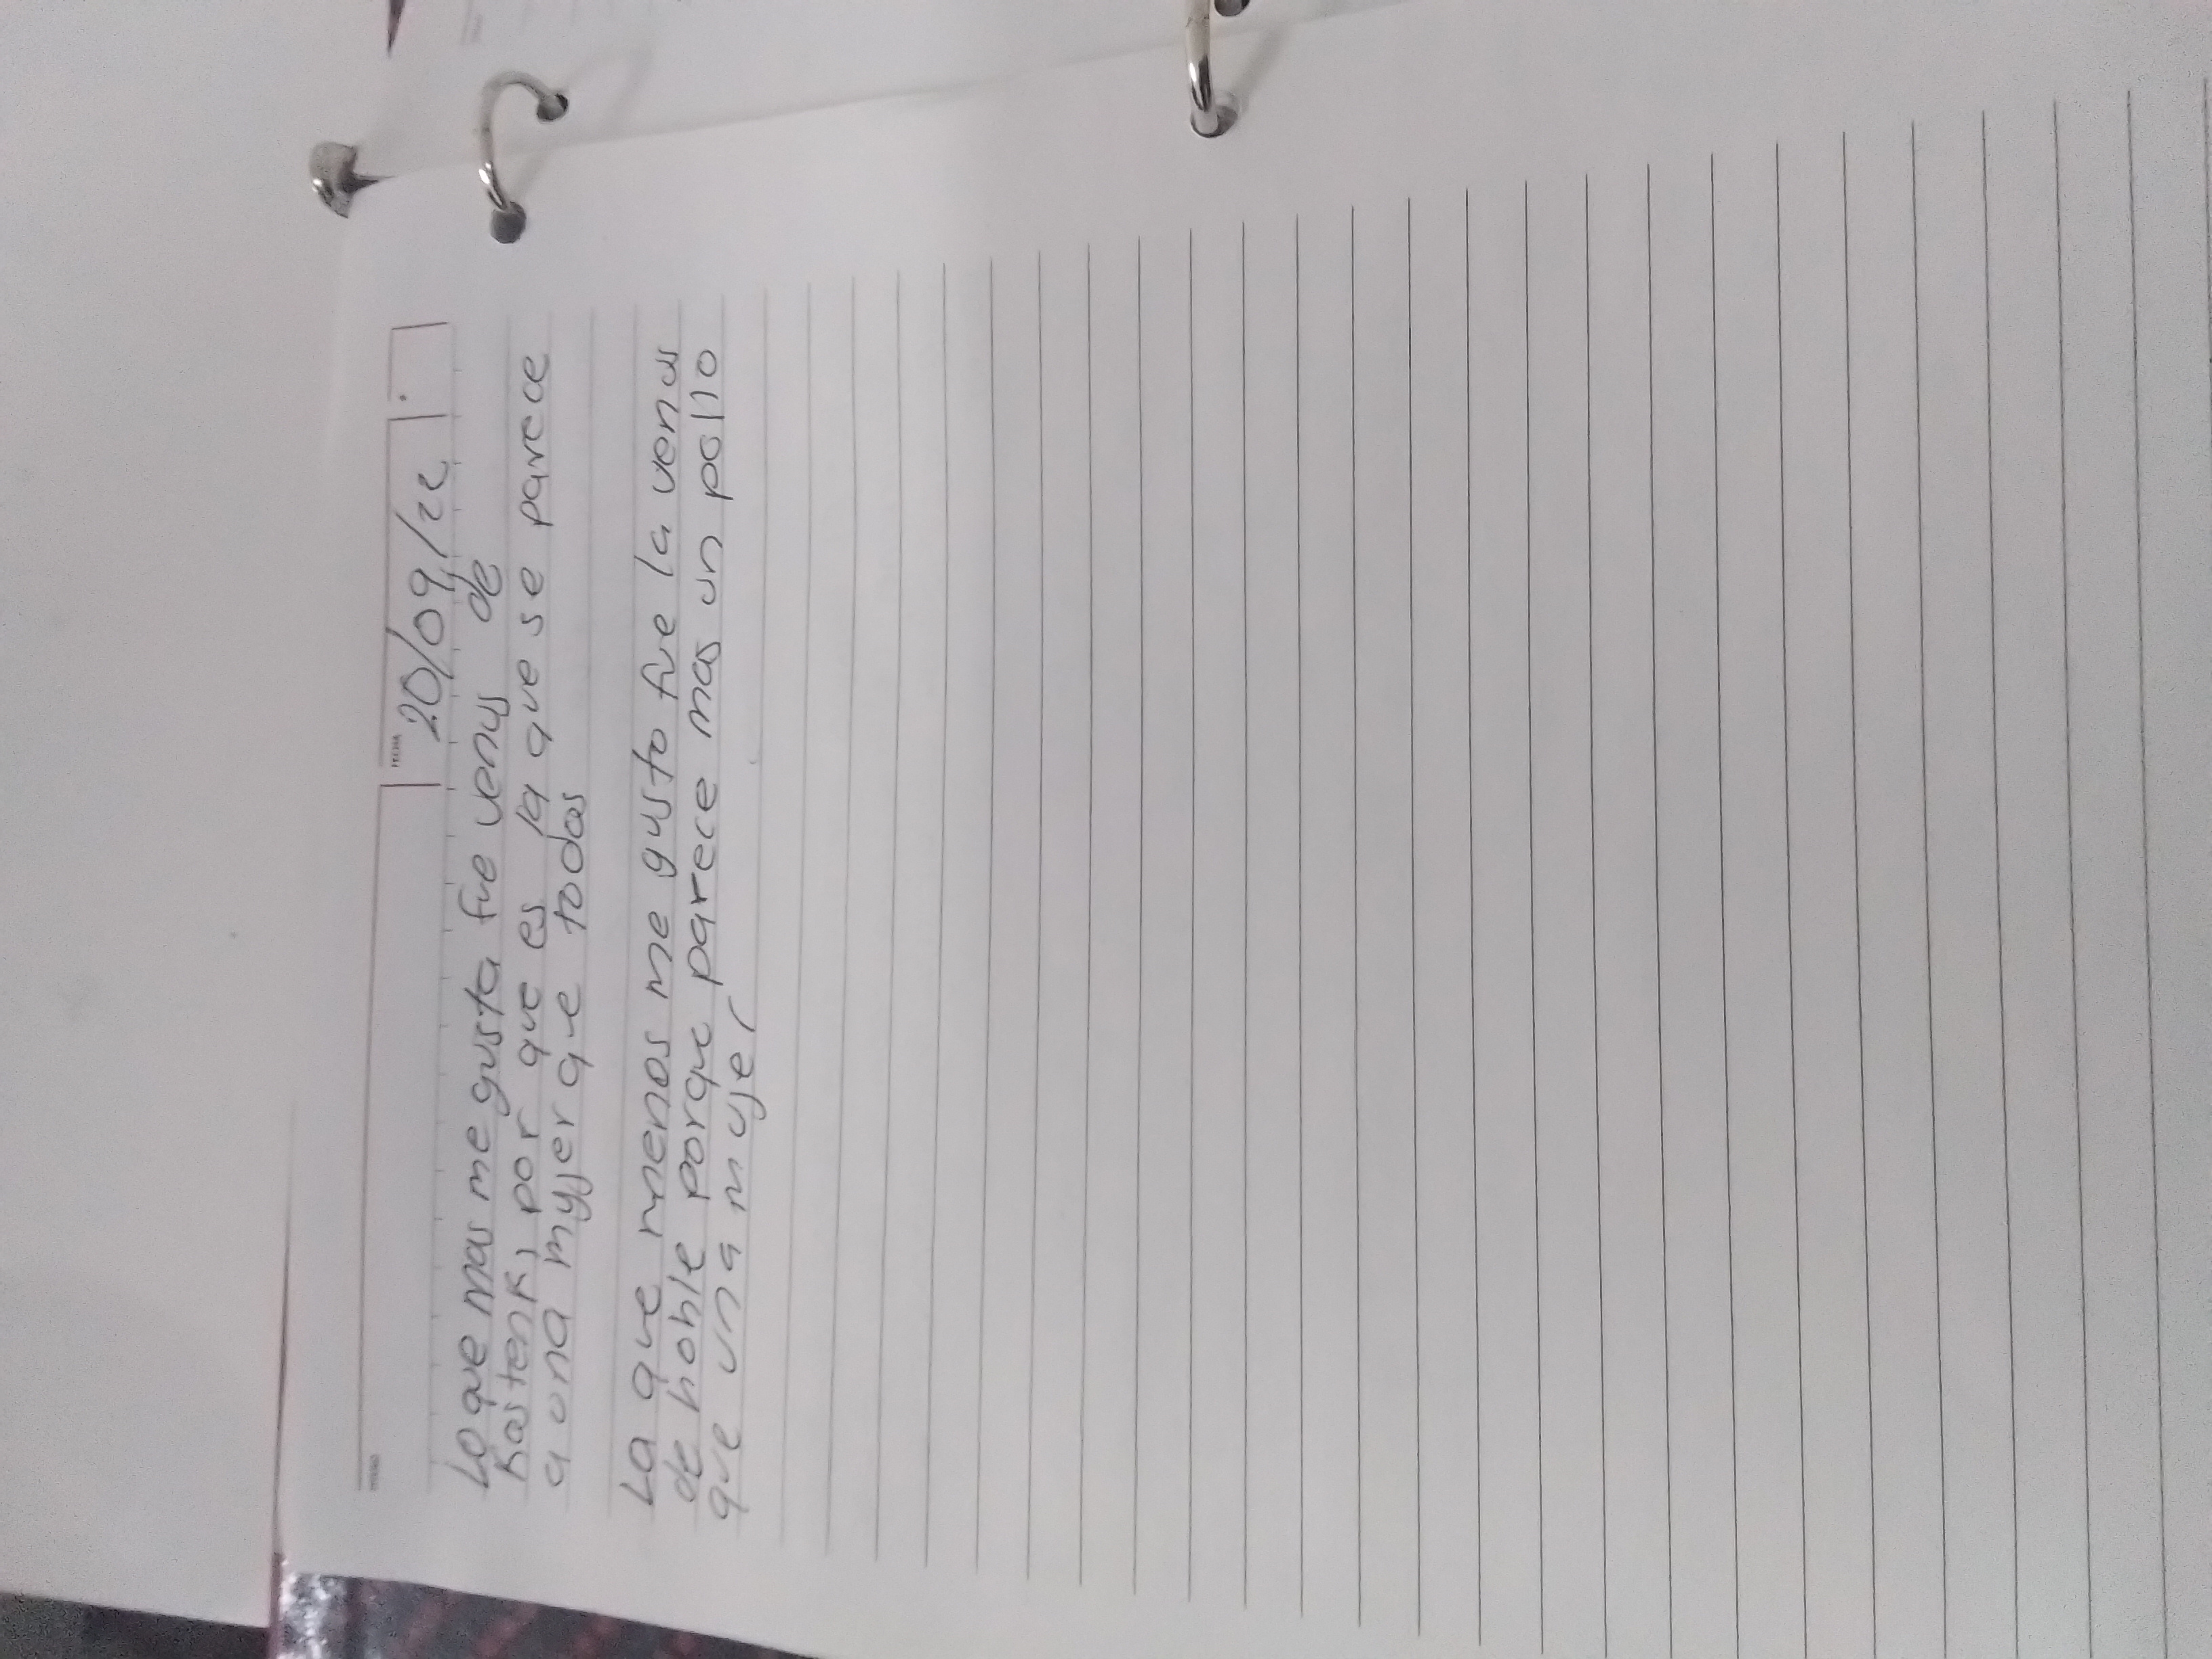 FECHA
20/09/22
Lo que mas me gusta fue venus de
Kostenki por que es la que se parece
a una mujer que todas
La que menos me gusto fue la venus
de hohle porque parece mas un pollo
que una mujer